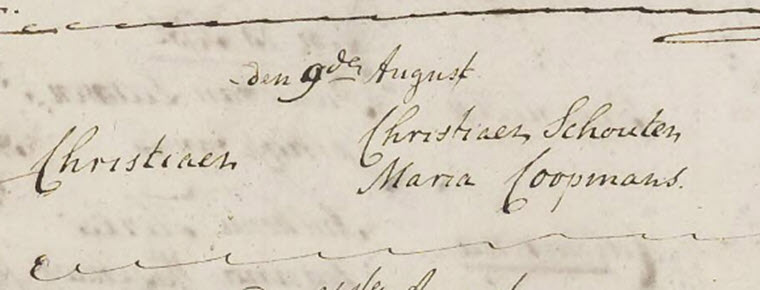 den 9den August
Christiaen
Christiaen Schouten
Maria Coopmans.